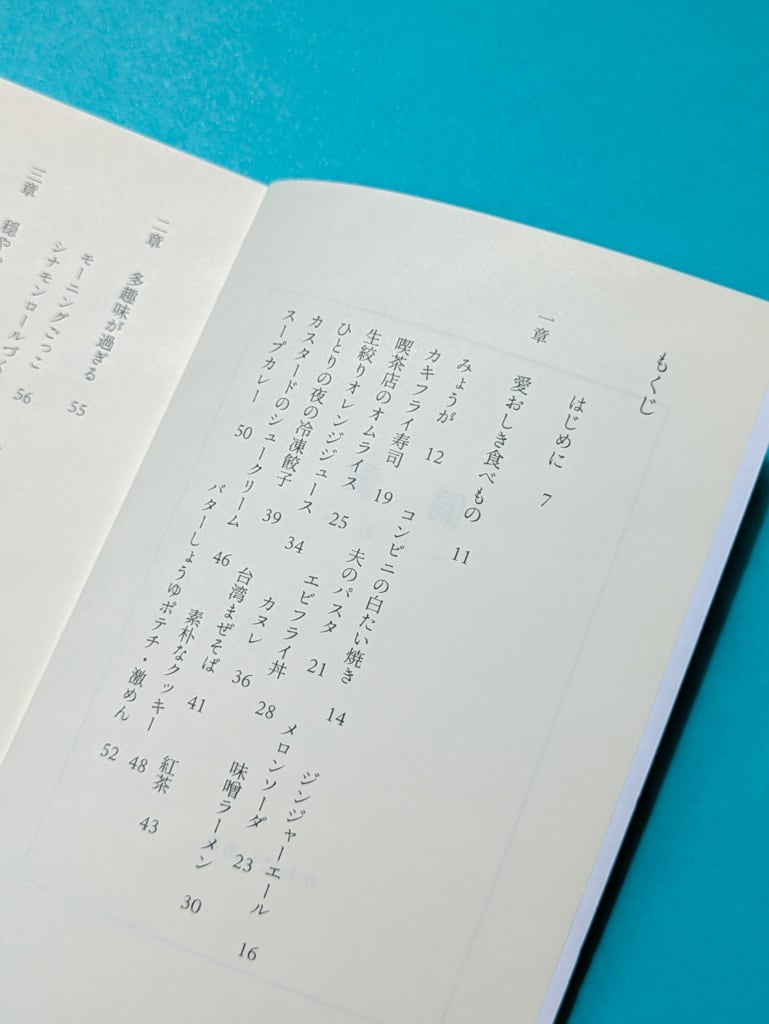 もくじ
はじめに 7
一章 愛おしき食べもの 11
みょうが 12 コンビニの白たい焼き 14 ジンジャーエール 16
カキフライ寿司 19 夫のパスタ 21 メロンソーダ 23
喫茶店のオムライス 25 エビフライ丼 28 味噌ラーメン 30
生絞りオレンジジュース 34 カヌレ 36
ひとりの夜の冷凍餃子 39 台湾まぜそば 41 紅茶 43
カスタードのシュークリーム 46 素朴なクッキー 48
スープカレー 50 バターしょうゆポテチ・激めん 52
二章 多趣味が過ぎる
モーニングごっこ 55
シナモンロールづ 56
三章 穏や